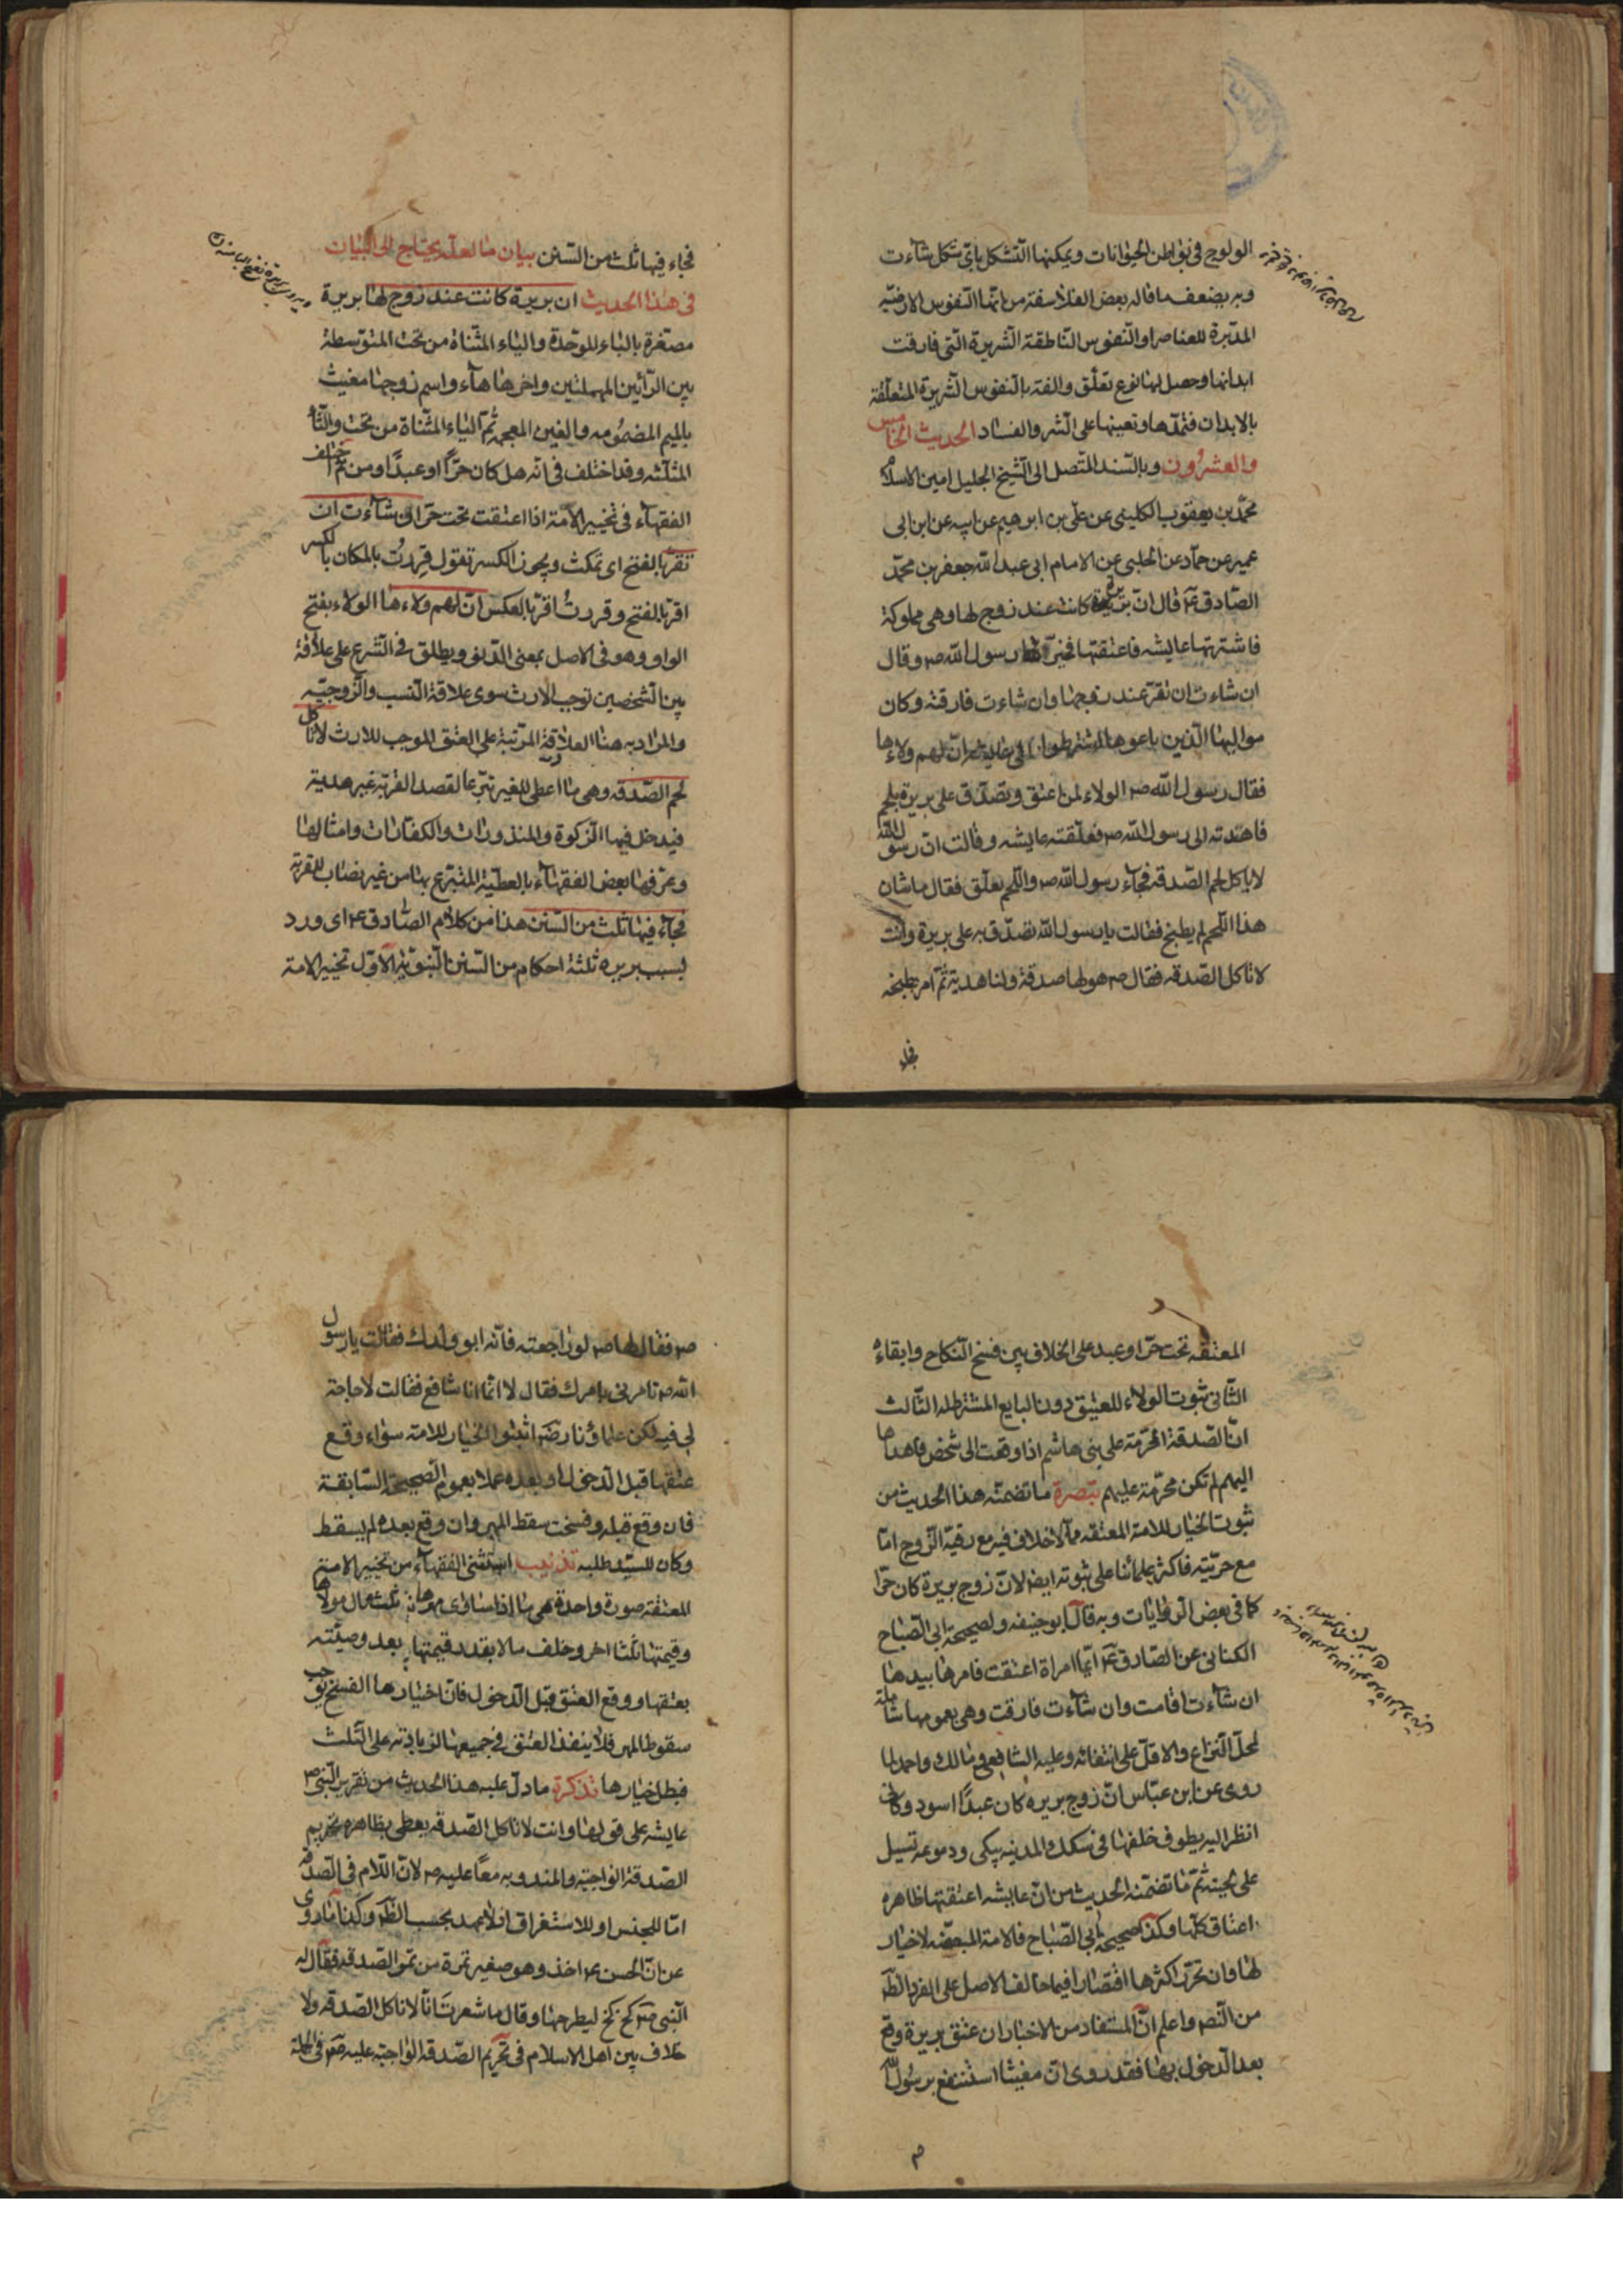 الولوج فى بواطن الحيوانات ويمكنها التشكل باى شكل شاءت
وبه يضعف ما قاله بعض الفلاسفة من انها النفوس الارضيه
المدبرة للعناصر او النفوس الناطقة الشريرة التى فارقت
ابدانها وحصل لها نوع تعلق والفة بالنفوس الشريرة المتعلقة
بالابدان فتمدها وتعينها على الشر والفساد الحديث الخامس
والعشرون وبالسند المتصل الى الشيخ الجليل امين الاسلام
محمد بن يعقوب الكلينى عن على بن ابرهيم عن ابيه عن ابن ابى
عمير عن حماد عن الحلبى عن الامام ابى عبد الله جعفر بن محمد
الصادق ع قال ان بريرة كانت عند زوج لها وهى مملوكة
فاشترتها عايشه فاعتقتها فخيرها رسول الله ص وقال
ان شاءت ان تقر عند زوجها وان شاءت فارقته وكان
مواليها الذين باعوها اشترطوا على عايشه ان لهم ولاءها
فقال رسول الله ص الولاء لمن اعتق وتصدق على بريرة بلحم
فاهدته الى رسول الله ص فعلقته عايشه وقالت ان رسول الله
لا ياكل لحم الصدقه فجاء رسول الله ص واللحم معلق فقال ما شان
هذا اللحم لم يطبخ فقالت يا رسول الله تصدق به على بريرة وانت
لا تاكل الصدقه فقال ص هو لها صدقة ولنا هدية ثم امر بطبخه
فجاء
فجاء فيها ثلث من السنن بيان ما لعله يحتاج الى البيان
فى هذا الحديث ان بريرة كانت عند زوج لها بريرة
مصغرة بالباء الموحدة والياء المثناة من تحت المتوسطة
بين الرائين المهملتين واخرها هاء واسم زوجها مغيث
بالميم المضمومه والغين المعجمه ثم الياء المثناة من تحت والثاء
المثلثه وقد اختلف فى انه هل كان حرًا او عبدًا ومن ثم اختلف
الفقهاء فى تخيير الامة اذا اعتقت تحت حر ان شاءت ان
تقر بالفتح اى تمكث ويجوز الكسر تقول قررت بالمكان بالكسر
اقر بالفتح وقررت اقر بالعكس ان لهم ولاءها الولاء بفتح
الواو وهو فى الاصل بمعنى الدنو ويطلق فى الشرع على علاقة
بين الشخصين توجب الارث سوى علاقة النسب والزوجيه
والمراد به هنا العلاقة المرتبة على العتق الموجب للارث لا تاكل
لحم الصدقه وهى ما اعطى للغير تبرعا لقصد القربة غير هدية
فيدخل فيها الزكوة والمنذورات والكفارات وامثالها
وعرفها بعض الفقهاء بالعطية المتبرع بها من غير نصاب للقربة
فجاء فيها ثلث من السنن هذا من كلام الصادق ع اى ورد
بسبب بريره ثلثة احكام من السنن النبوية الاول تخيير الامة
المعتقه تحت حر او عبد على الخلاف بين فسخ النكاح وابقاءه
الثانى ثبوت الولاء للعتيق دون البايع المشترط له الثالث
ان الصدقة المحرمة على بنى هاشم اذا وقعت الى شخص فاهداها
اليهم لم تكن محرمة عليهم تبصرة ما تضمنه هذا الحديث من
ثبوت الخيار للامة المعتقه مما لا خلاف فيه مع رقية الزوج اما
مع حريته فاكثر علمائنا على ثبوته ايضا لان زوج بريرة كان حرا
كما فى بعض الروايات وبه قال ابو حنيفه ولصحيحة ابى الصباح
الكنانى عن الصادق ع ايما امراة اعتقت فامرها بيدها
ان شاءت اقامت وان شاءت فارقت وهى بعمومها شاملة
لمحل النزاع والاقل على انتفائه وعليه الشافعى ومالك واحمد لما
روى عن ابن عباس ان زوج بريره كان عبدًا اسود وكانى
انظر اليه يطوف خلفها فى سكك المدينه يبكى ودموعه تسيل
على لحيته ثم ما تضمنه الحديث من ان عايشه اعتقتها ظاهره
اعتاق كلها وكذا صحيحة ابى الصباح فالامة المبعضه لا خيار
لها وان تحرر اكثرها اقتصارا فيما خالف الاصل على الفرد الظ
من النص واعلم ان المستفاد من الاخبار ان عتق بريرة وقع
بعد الدخول بها فقد روى ان مغيثا استشفع برسول الله
ص
ص فقال لها ص لو راجعته فانه ابو ولدك فقالت يا رسول
الله ص تامرنى بامرك فقال لا انما انا شافع فقالت لا حاجة
لى فيه لكن علماؤنا رض اثبتوا الخيار للامة سواء وقع
عتقها قبل الدخول او بعده عملا بعموم الصحيحة السابقة
فان وقع قبله وفسخت سقط المهر وان وقع بعده لم يسقط
وكان للسيد طلبه تذنيب استثنى الفقهاء من تخيير الامة
المعتقة صورة واحدة هى ما اذا ساوى مهرها ثلث مال مولاها
وقيمتها ثلثا اخر وخلف مالا بقدر قيمتها بعد وصيته
بعتقها ووقع العتق قبل الدخول فان اختيارها الفسخ يوجب
سقوط المهر فلا ينفذ العتق فى جميعها لزيادته على الثلث
فبطل خيارها تذكرة ما دل عليه هذا الحديث من تقرير النبى ص
عايشه على قولها وانت لا تاكل الصدقه يعطى بظاهره تحريم
الصدقة الواجبة والمندوبه معًا عليه ص لان اللام فى الصدقه
اما للجنس او للاستغراق اذ لا عهد بحسب الظ وكذا ما روى
عن ان الحسن ع اخذ وهو صغير تمرة من تمر الصدقه فقال له
النبى ص كخ كخ ليطرحها وقال ما شعرت انا لا ناكل الصدقه ولا
خلاف بين اهل الاسلام فى تحريم الصدقه الواجبه عليه ص فى الجملة